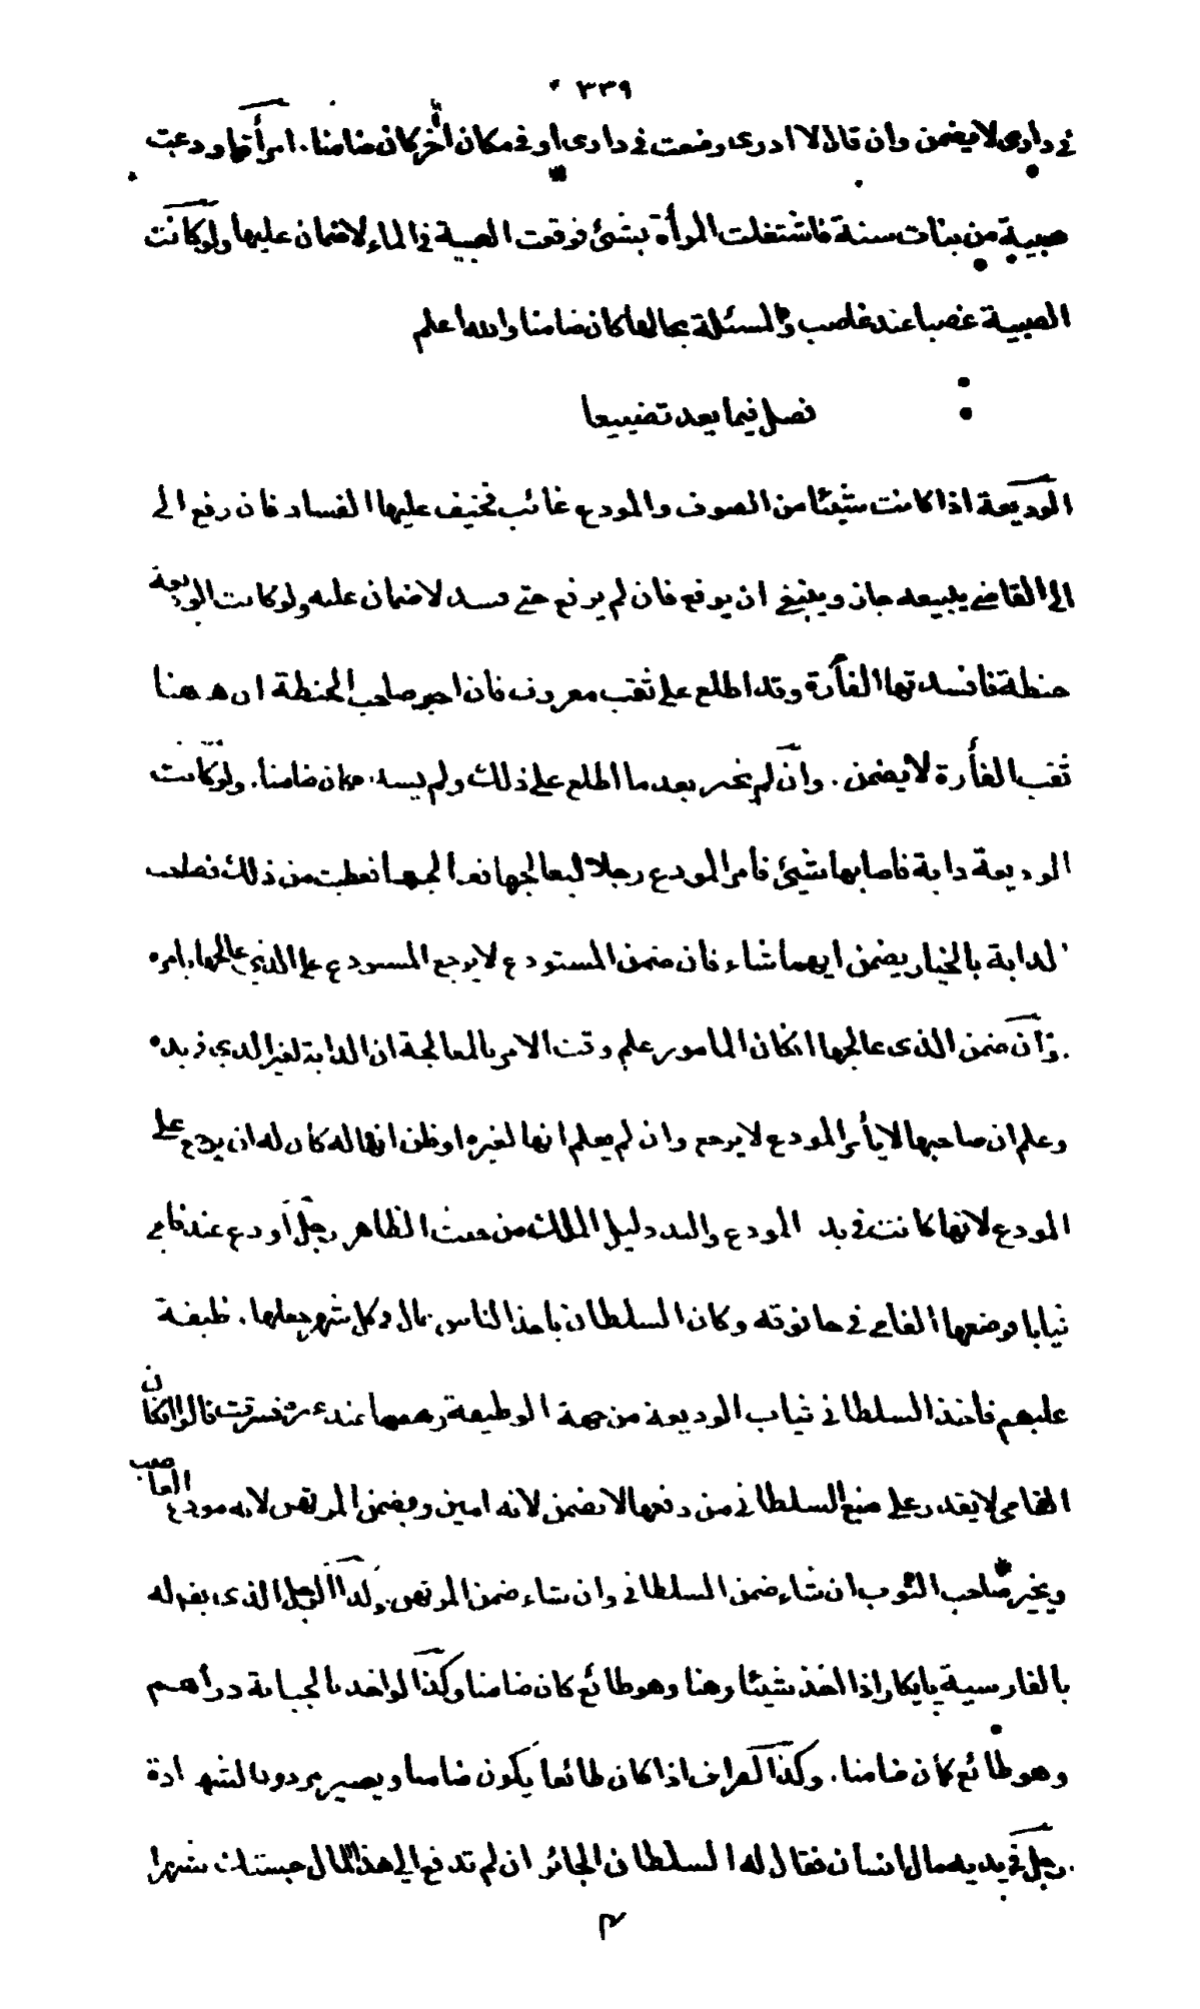 ٣٣٩
في دارى لا يضمن وان قال لا ادرى وضعت في دارى او في مكان اٰخر كان ضامنا . امرأة اودعت
صبية من بنات سنة فاشتغلت المرأة بشئ فوقعت الصبية في الماء لا ضمان عليها ولو كانت
الصبية غصبا عند غاصب والمسئلة بحالها كان ضامنا والله اعلم
فصل فيما يعد تضييعا
الوديعة اذا كانت شيئا من الصوف والمودع غائب فخيف عليها الفساد فان رفع الى
الى القاضي يبيعه جاز وينبغي ان يرفع فان لم يرفع حتى فسد لا ضمان عليه ولو كانت الوديعة
حنطة فافسدتها الفأرة وقد اطلع على ثقب معروف فان اخبر صاحب الحنطة ان ههنا
ثقب الفأرة لا يضمن . وان لم يخبر بعد ما اطلع على ذلك ولم يسده كان ضامنا . ولو كانت
الوديعة دابة فاصابها شيئ فأمر المودع رجلا ليعالجها فعالجها فعطبت من ذلك فصاحب
الدابة بالخيار يضمن ايهما شاء فان ضمن المستودع لا يرجع المستودع على الذي عالجها بامره
وان ضمن الذى عالجها انكان المامور علم وقت الامر بالمعالجة ان الدابة لغير الذي في يده
وعلم ان صاحبها لا يأمر المودع لا يرجع وان لم يعلم انها لغيره او ظن انها له كان له ان يرجع على
المودع لانها كانت في يد المودع واليد دليل الملك من حيث الظاهر رجل أودع عند فامي
ثيابا فوضعها الفامي في حانوته وكان السلطان ياخذ الناس بمال في كل شهر جعلها . ظيفة
عليهم فاخذ السلطاني ثياب الوديعة من جهة الوظيفة ورهنها عند غيره فسرقت قالوا ان كان
الفامي لا يقدر على منع السلطاني من دفعها لا يضمن لانه امين ويضمن المرتهن لانه مودع الغاصب
ويخير صاحب الثوب ان شاء ضمن السلطاني وان شاء ضمن المرتهن وكذا الرجل الذى يقال له
بالفارسية پايكار اذا اخذ شيئا رهنا وهو طائع كان ضامنا وكذا لو اخذ بالجباية دراهم
وهو طائع كان ضامنا . وكذا الصراف اذا كان طائعا يكون ضامنا ويصير مردود الشهادة
رجل في يديه مال انسان فقال له السلطان الجائر ان لم تدفع الى هذا المال حبستك شهرا